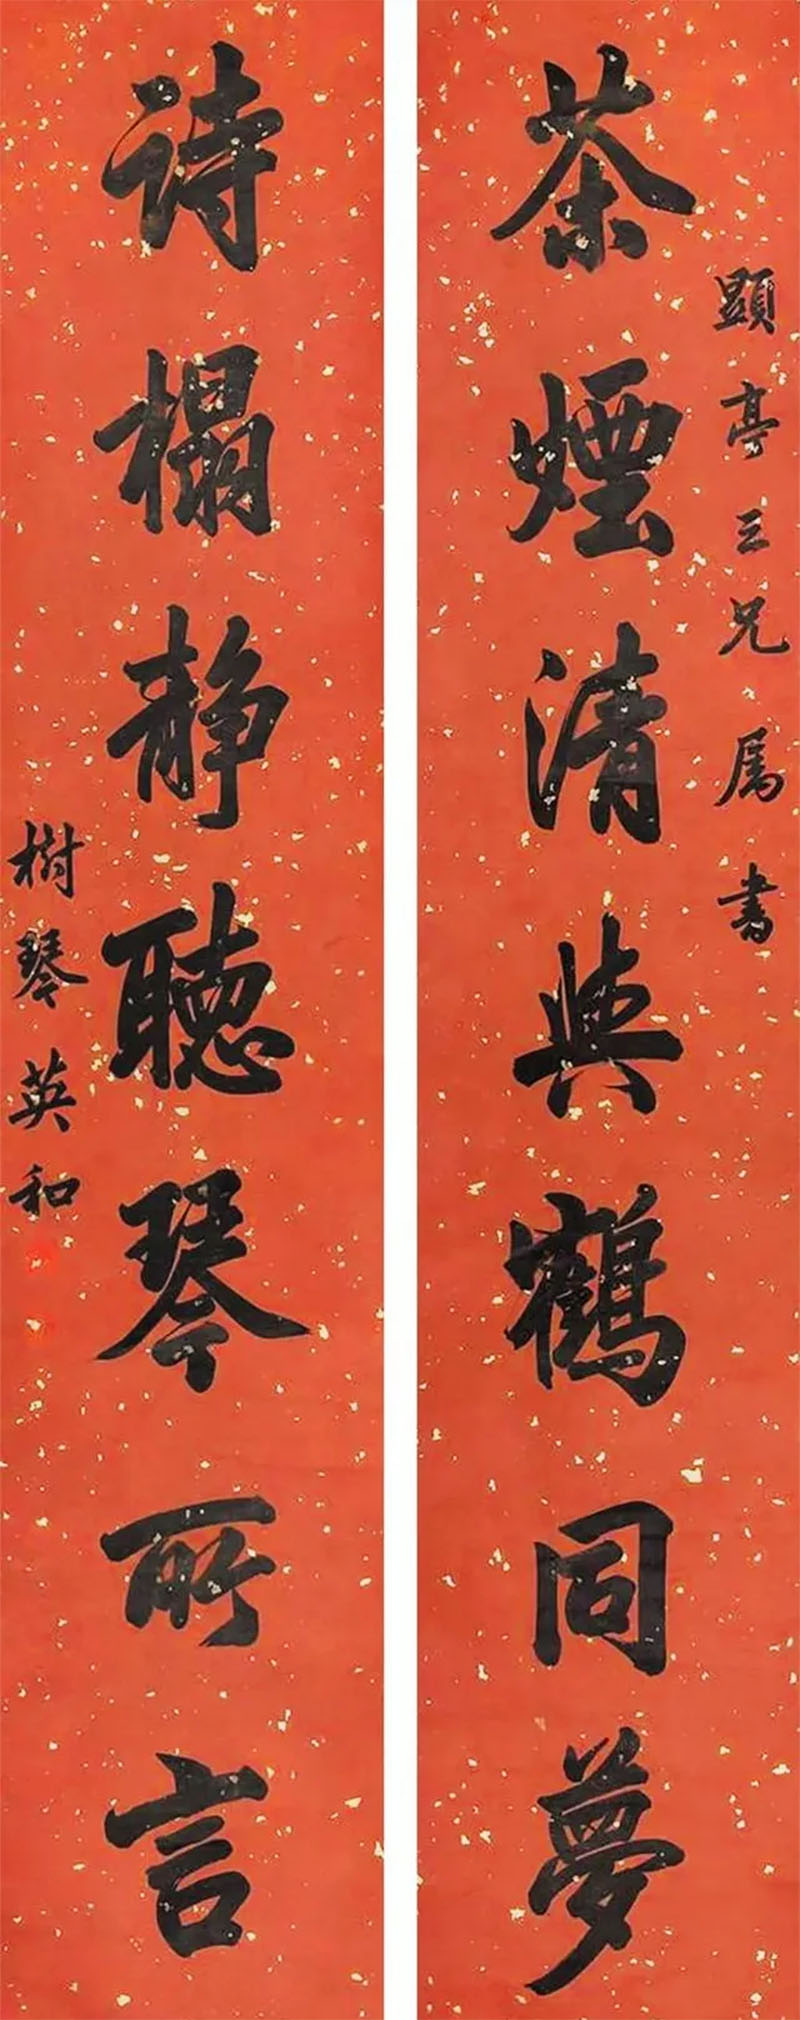 顯亭三兄属書
茶煙清與鶴同夢
詩榻静聴琴所言
樹琴英和